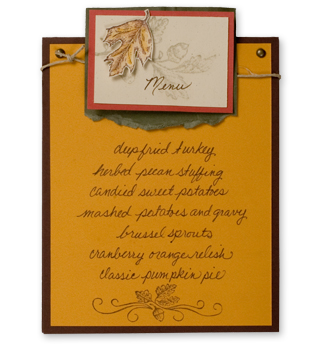 Menu
deepfried turkey
herbed pecan stuffing
candied sweet potatoes
mashed potatoes and gravy
brussel sprouts
cranberry orange relish
classic pumpkin pie